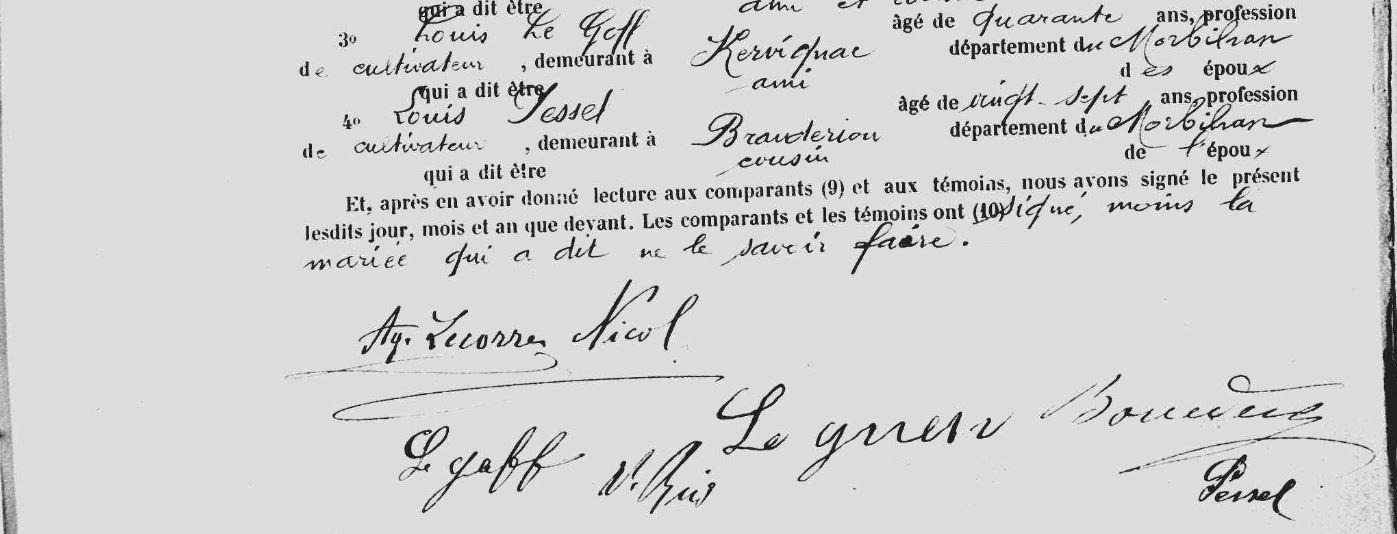 qui a dit être ami et
3o Louis Le Goff âgé de quarante ans, profession
de cultivateur , demeurant à Kervignac département du Morbihan
qui a dit être ami des époux
4o Louis Jessel âgé de vingt-sept ans, profession
de cultivateur , demeurant à Branderion département du Morbihan
qui a dit être cousin de l'époux
Et, après en avoir donné lecture aux comparants (9) et aux témoins, nous avons signé le présent
lesdits jour, mois et an que devant. Les comparants et les témoins ont (10) signé, moins la
mariée qui a dit ne le savoir faire.
Ag. Lecorre Nicol
Le Guen
Le goff